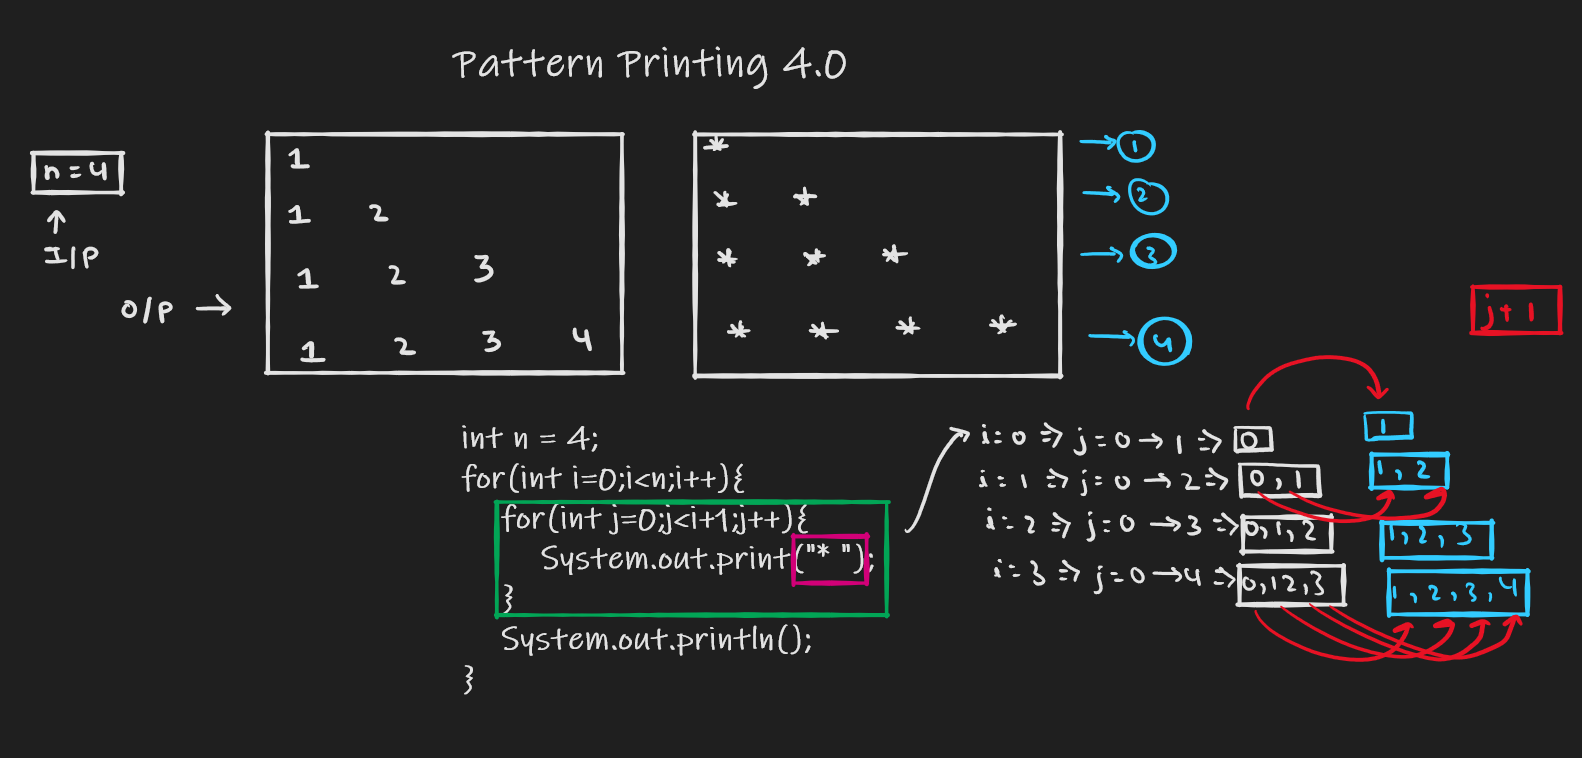 Pattern Printing 4.0
n = 4
I/P
O/P →
1
1 2
1 2 3
1 2 3 4
*
* *
* * *
* * * *
→ 1
→ 2
→ 3
→ 4
j+1
int n = 4;
for(int i=0;i<n;i++){
for(int j=0;j<i+1;j++){
System.out.print("* ");
}
System.out.println();
}
i=0 => j=0 → 1 => 0
i=1 => j=0 → 2 => 0,1
i=2 => j=0 → 3 => 0,1,2
i=3 => j=0 → 4 => 0,12,3
1
1,2
1,2,3
1,2,3,4